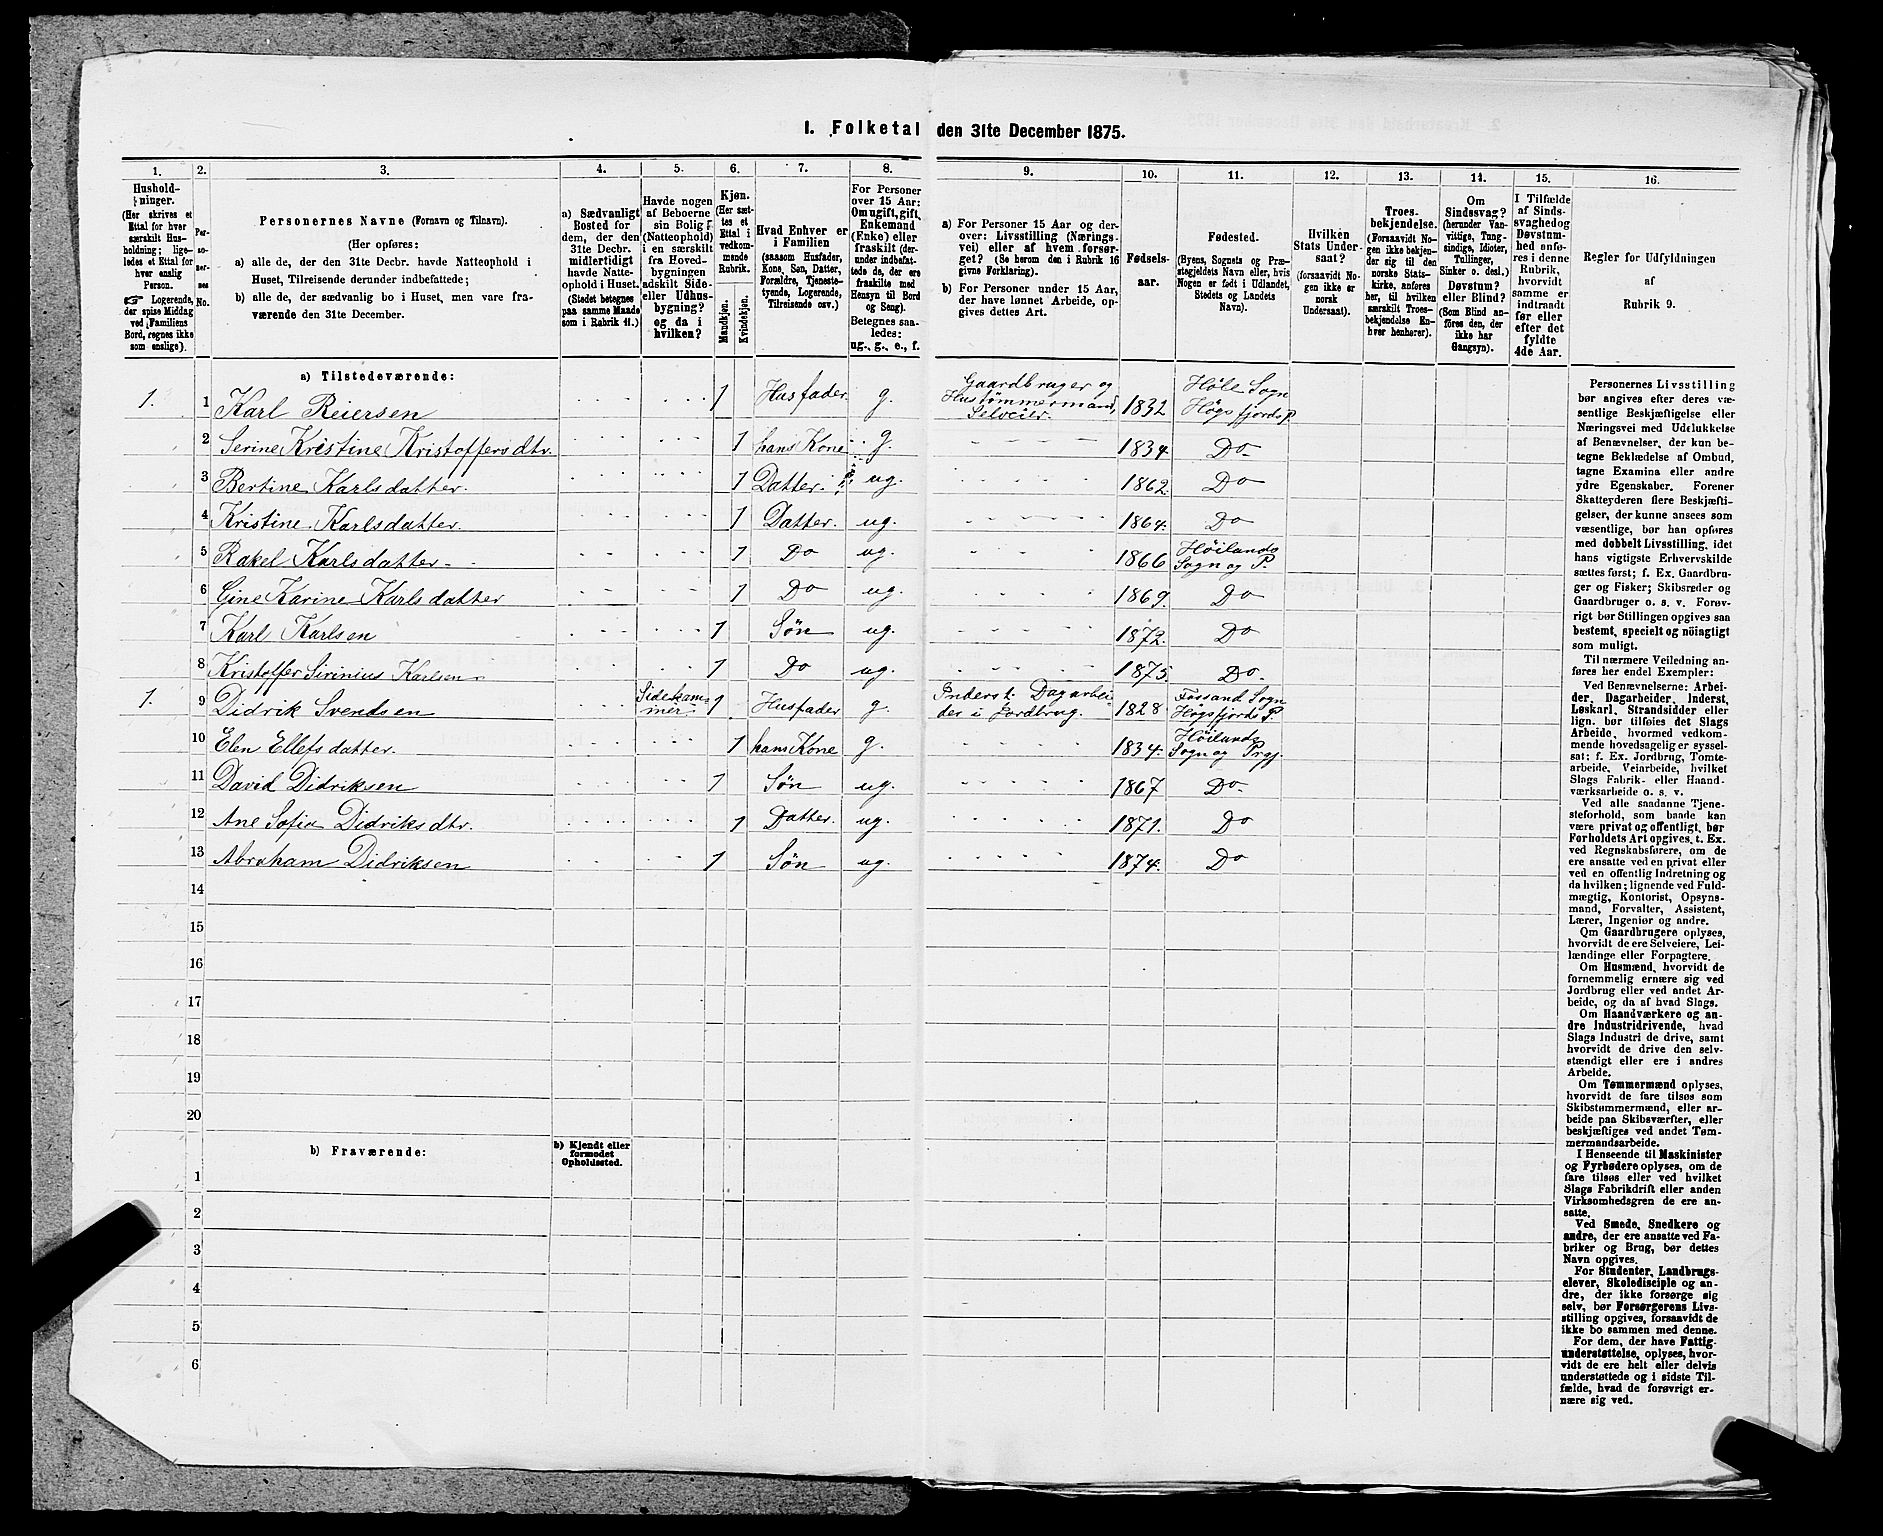 1. Folketal den 31te December 1875.
1. 2. 3. 4. 5. 6. 7. 8. 9. 10. 11. 12. 13. 14. 15. 16.
Hushold-
ninger.
(Her skrives et
Ettal for hver
særskilt Hus-
holdning; lige-
ledes et Ettal for
hver enslig
Person.
☞ Logerende,
der spise Middag
ved Familiens
Bord, regnes ikke
som enslige).
Per-
so-
ner-
nes
No.
Personernes Navne (Fornavn og Tilnavn).
(Her opføres:
a) alle de, der den 31te Decbr. havde Natteophold i
Huset, Tilreisende derunder indbefattede;
b) alle de, der sædvanlig bo i Huset, men vare fra-
værende den 31te December.
a) Sædvanligt
Bosted for
dem, der den
31te Decbr.
midlertidigt
havde Natte-
ophold i Huset.
(Stedet betegnes
paa samme Maade
som i Rubrik 11.)
Havde nogen
af Beboerne
sin Bolig
(Natteophold)
i en særskilt
fra Hoved-
bygningen
adskilt Side-
eller Udhus-
bygning?
og da i
hvilken?
Kjøn.
(Her sæt-
tes et
Ettal i
vedkom-
mende
Rubrik.
Mandkjøn.
Kvindekjøn.
Hvad Enhver er
i Familien
(saasom Husfader,
Kone, Søn, Datter,
Forældre, Tjeneste-
tyende, Logerende,
Tilreisende osv.)
For
Personer
over 15 Aar:
Om ugift, gift,
Enkemand
(Enke) eller
fraskilt (der-
under indbefat-
tede de, der ere
fraskilte med
Hensyn til Bord
og Seng).
Betegnes saa-
ledes:
ug., g., e., f.
a) For Personer 15 Aar og der-
over: Livsstilling (Nærings-
vei) eller af hvem forsør-
get? (Se herom den i Rubrik 16
givne Forklaring).
b) For Personer under 15 Aar,
der have lønnet Arbeide, op-
gives dettes Art.
Fødsels-
aar.
Fødested.
(Byens, Sognets og Præ-
stegjeldets Navn eller, hvis
Nogen er født i Udlandet,
Stedets og Landets
Navn).
Hvilken
Stats Under-
saat?
(forsaavidt No-
gen ikke er
norsk
Undersaat).
Troes-
bekjendelse.
(Forsaavidt No-
gen ikke bekjen-
der sig til den
norske Stats-
kirke, anføres
her, til hvilken
særskilt Troes-
bekjendelse En-
hver henhører).
Om
Sindssvag?
(herunder Van-
vittige, Tung-
sindige, Idioter,
Tullinger,
Sinker o. desl.)
Døvstum?
eller Blind?
(Som Blind an-
føres den, der
ikke har
Gangsyn).
I Tilfælde
af Sinds-
svaghed og
Døvstum-
hed anfø-
res i denne
Rubrik,
hvorvidt
samme er
indtraadt
før eller
efter det
fyldte
4de Aar.
Regler for Udfyldningen
af
Rubrik 9.
a) Tilstedeværende:
1. 1 Karl Reiersen 1 Husfader g. Gaardbruger og Hustømmermand, Selveier. 1832 Høle Sogn Høgsfjords P.
2 Serine Kristine Kristoffersdtr. 1 hans Kone g. 1834 Do
3 Bertine Karlsdatter. 1 Datter. ug. 1862. Do
4 Kristine Karlsdatter. 1 Datter. ug. 1864. Do
5 Rakel Karlsdatter 1 Do ug. 1866 Høilands Sogn og P.
6 Gine Karine Karlsdatter 1 Do ug. 1869. Do
7 Karl Karlsen 1 Søn ug. 1872. Do
8 Kristoffer Sirinius Karlsen 1 Do ug. 1875. Do
1. 9 Didrik Svendsen Sidekammer 1 Husfader g. Inderst. Dagarbeider i Jordbrug. 1828 Fossand Sogn Høgsfjords P.
10 Elen Ellefsdatter. 1 hans Kone g. 1834. Høilands Sogn og Prgj
11 David Didriksen 1 Søn ug. 1867 Do
12 Ane Sofie Didriksdtr. 1 Datter. ug. 1871. Do
13 Abraham Didriksen 1 Søn ug. 1874. Do
14
15
16
17
18
19
20
b) Fraværende:
b) Kjendt eller
formodet
Opholdssted.
1
2
3
4
5
6
Personernes Livsstilling
bør angives efter deres væ-
sentlige Beskjæftigelse eller
Næringsvei med Udelukkelse
af Benævnelser, der kun be-
tegne Beklædelse af Ombud,
tagne Examina eller andre
ydre Egenskaber. Forener
Skatteyderen flere Beskjæfti-
gelser, der kunne ansees som
væsentlige, bør han opføres
med dobbelt Livsstilling, idet
hans vigtigste Erhvervskilde
sættes først; f. Ex. Gaardbru-
ger og Fisker; Skibsreder og
Gaardbruger o. s. v. Forøv-
rigt bør Stillingen opgives saa
bestemt, specielt og nöiagtigt
som muligt.
Til nærmere Veiledning an-
føres her endel Exempler:
Ved Benævnelserne: Arbei-
der, Dagarbeider, Inderst,
Løskarl, Strandsidder eller
lign. bør tilføies det Slags
Arbeide, hvormed vedkom-
mende hovedsagelig er syssel-
sat; f. Ex. Jordbrug, Tomte-
arbeide, Veiarbeide, hvilket
Slags Fabrik- eller Haand-
værksarbeide o. s. v.
Ved alle saadanne Tjene-
steforhold, som baade kan
være privat og offentligt, bør
Forholdets Art opgives, t. Ex.
ved Regnskabsførere, om de
ere ansatte ved en privat eller
ved en offentlig Indretning og
da hvilken; lignende ved Fuld-
mægtig, Kontorist, Opsyns-
mand, Forvalter, Assistent,
Lærer, Ingeniør og andre.
Om Gaardbrugere oplyses,
hvorvidt de ere Selveiere, Lei-
lændinge eller Forpagtere.
Om Husmænd, hvorvidt de
fornemmelig ernære sig ved
Jordbrug eller ved andet Ar-
beide, og da af hvad Slags.
Om Haandværkere og an-
dre Industridrivende, hvad
Slags Industri de drive, samt
hvorvidt de drive den selv-
stændigt eller ere i andres
Arbeide.
Om Tømmermænd oplyses,
hvorvidt de fare tilsøs som
Skibstømmermænd, eller ar-
beide paa Skibsværfter, eller
beskjæftiges ved andet Tøm-
mermandsarbeide.
I Henseende til Maskinister
og Fyrbødere oplyses, om de
fare tilsøs eller ved hvilket
Slags Fabrikdrift eller anden
Virksomhedsgren de ere an-
satte.
Ved Smede, Snedkere og
andre, der ere ansatte ved Fa-
briker og Brug, bør dettes
Navn opgives.
For Studenter, Landbrugs-
elever, Skoledisciple og an-
dre, der ikke forsørge sig
selv, bør Forsørgerens Livs-
stilling opgives, forsaavidt de
ikke bo sammen med denne.
For dem, der have Fattig-
understøttelse, oplyses, hvor-
vidt de ere helt eller delvis
understøttede og i sidste Til-
fælde, hvad de forøvrigt er-
nære sig ved.